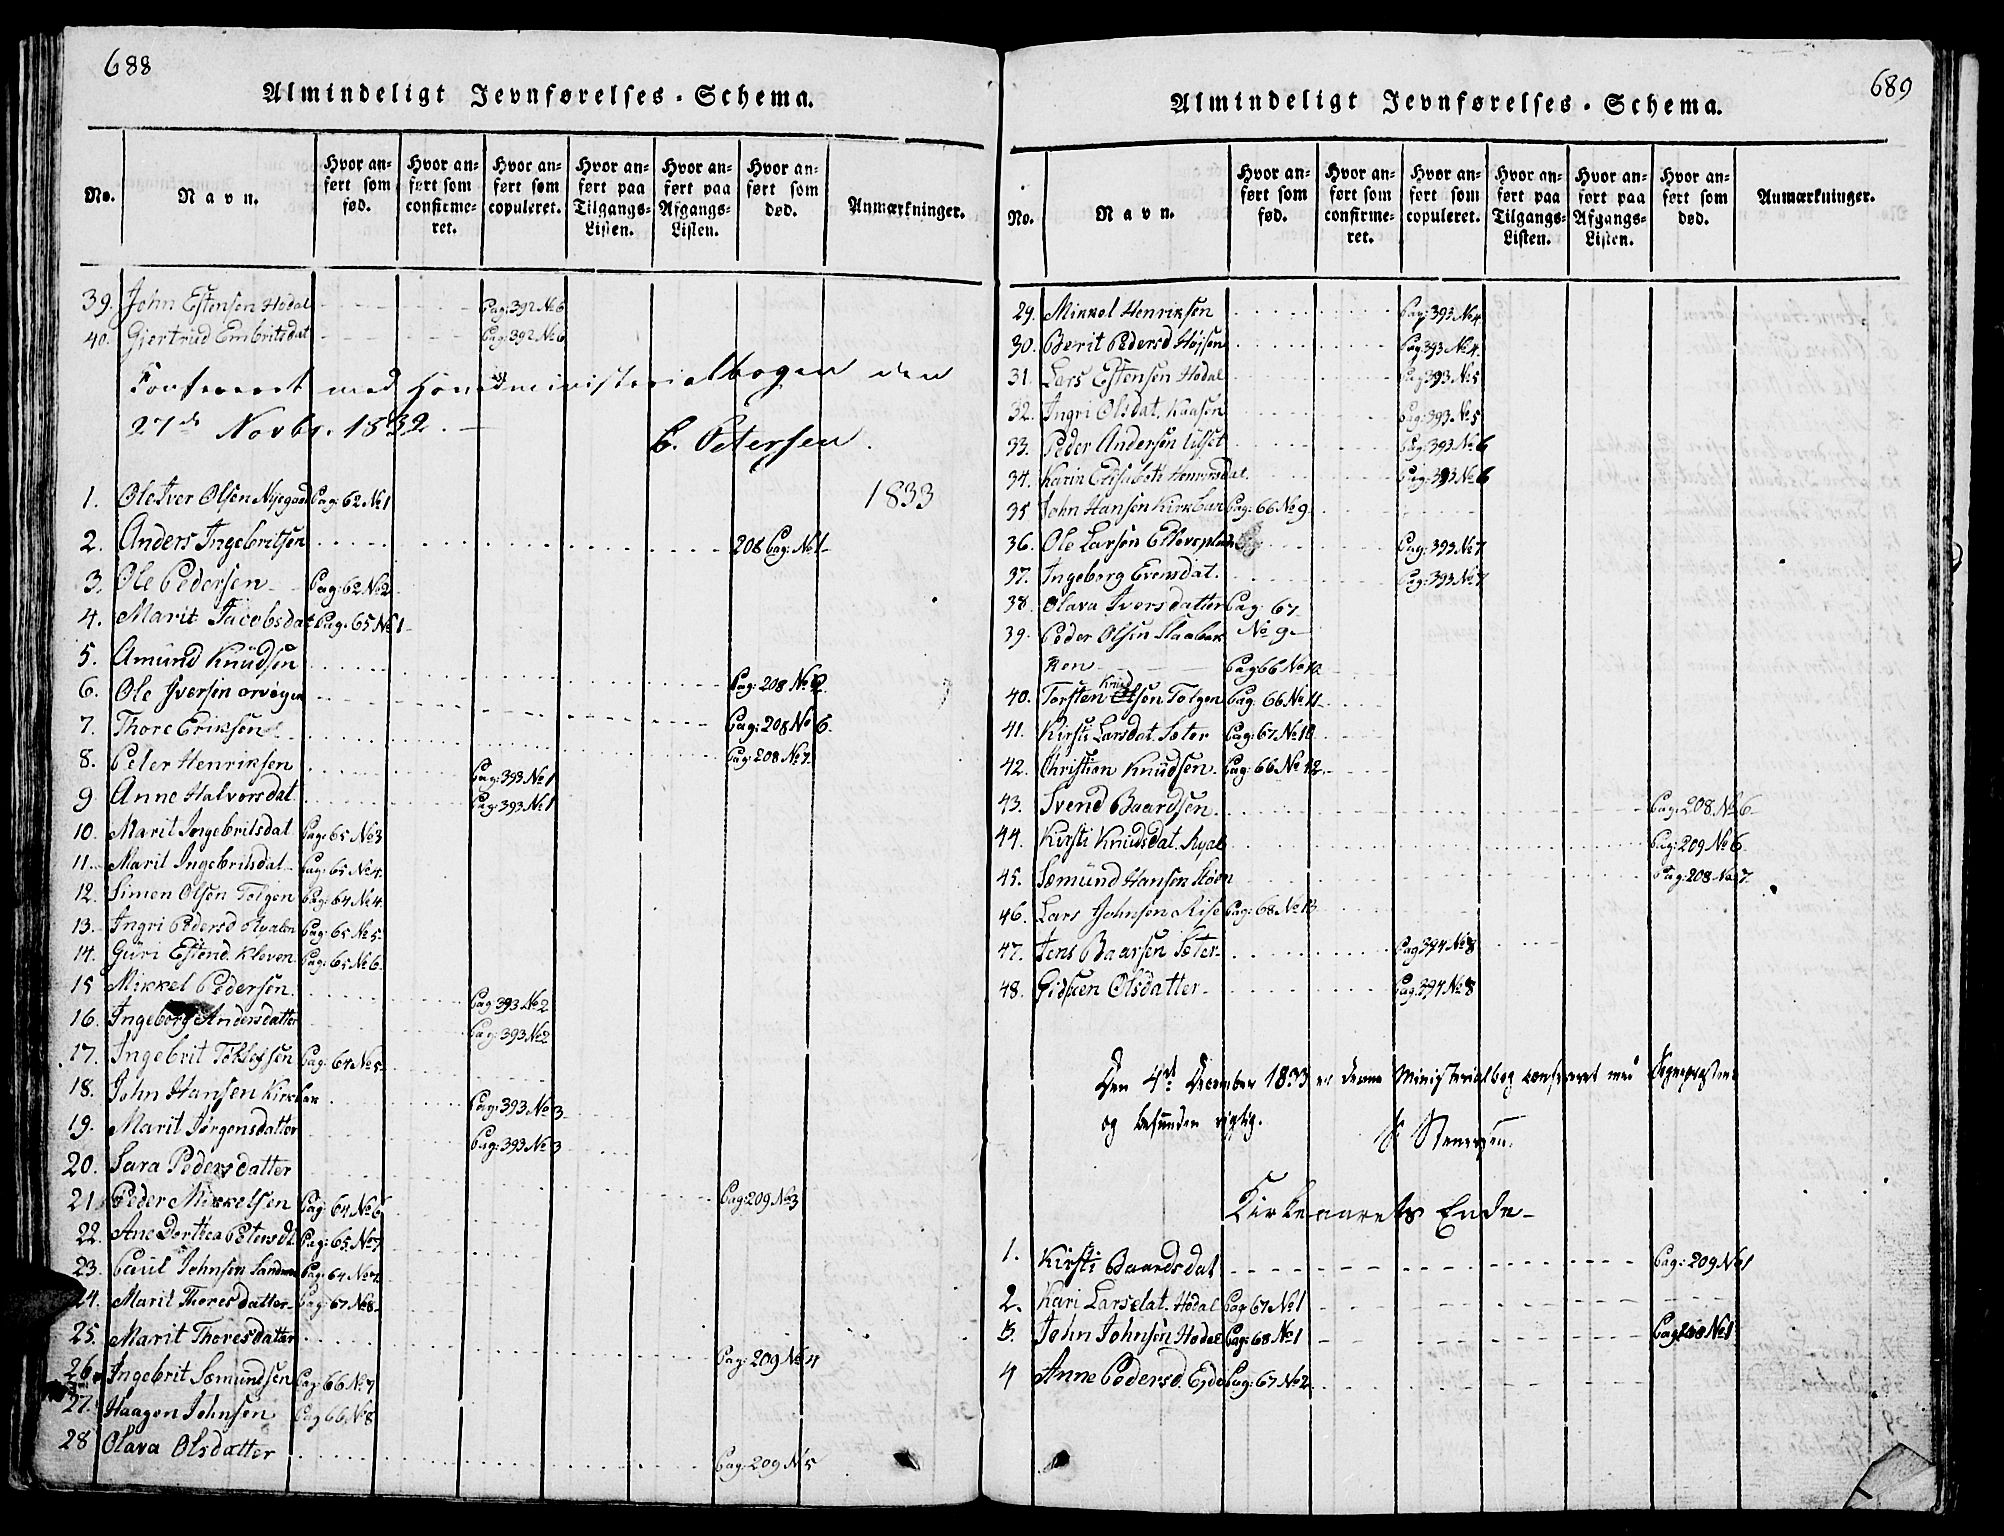 688
Almindeligt Jevnførelses-Schema.
No. Navn. Hvor anført som fød. Hvor anført som confirmeret. Hvor anført som copuleret. Hvor anført paa Tilgangs-Listen. Hvor anført paa Afgangs-Listen. Hvor anført som død. Anmærkninger.
39. John Estensen Hodal Pag: 392 No 6
40. Gjertrud Embritsdat Pag: 392 No 6
Confereret med Hovedministerialbogen den
27de Novbr. 1832.
C. Petersen.
1. Ole Iver Olsen Nyegaard Pag: 62 No 1 1833
2. Anders Ingebritsen 208 Pag: No 1
3. Ole Pedersen Pag: 62 No 2
4. Marit Jacobsdat Pag: 65 No 1
5. Amund Knüdsen Pag: 208 No 2
6. Ole Iversen Pag: 208 No 6.
7. Thore Eriksen Pag: 208 No 7
8. Peter Henriksen Pag: 393 No 1
9 Anne Halvorsdat Pag: 393 No 1
10. Marit Ingebritsdat Pag: 65 No 3
11. Marit Ingebritsdat Pag: 65 No 4.
12. Simen Olsen Tolgen Pag: 64 No 4.
13. Ingri Pedersd Pag: 65 No 5
14. Guri Estend. Kleven Pag: 65 No 6.
15 Mikkel Pedersen Pag: 393 No 2
16. Ingeborg Andersdatter Pag: 393 No 2
17. Ingebrit Pag: 64 No 5
18. John Hansen Pag: 393 No 3
19. Marit Jørgensdatter Pag: 393 No 3
20. Sara Pedersdatter Pag: 209 No 3
21. Peder Mikkelsen Pag: 64 No 6
22. Ane Dorthea Petersdt Pag: 65. No 7
23. Paul Johnsen Pag: 64 No 7
24. Marit Thoresdatter Pag: 67 No 8
25. Marit Thoresdatter Pag: 209 No 4
26. Ingebrit Sæmundsen Pag: 66 No 7
27. Haagen Johnsen Pag: 66 No 8
28 Olava Olsdatter Pag: 209 No 5
689
Almindeligt Jevnførelses-Schema.
No. Navn. Hvor anført som fød. Hvor anført som confirmeret. Hvor anført som copuleret. Hvor anført paa Tilgangs-Listen. Hvor anført paa Afgangs-Listen. Hvor anført som død. Anmærkninger.
29. Mikkel Henriksen Pag: 393 No 4
30. Berit Pedersd Pag: 393 No 4.
31. Lars Estensen Hodal Pag: 393 No 5
32. Ingri Olsdat. Kaasen Pag: 393 No 5
33. Peder Andersen Pag: 393 No 6
34. Karin Elisabeth Henriksdat. Pag: 393 No 6
35 John Hansen Pag: 66 No 9
36. Ole Larsen Pag: 393 No 7
37. Ingeborg Evensdat. Pag: 393 No 7
38. Olava Iversdatter Pag: 67
No 9
39. Peder Olsen Staabek
ken Pag: 66 No 10
40. Torsten Knud Olsen Tolgen Pag: 66 No 11
41. Kirsti Larsdat. Sæter Pag: 67 No 10
42. Christian Knudsen Pag: 66 No 12
43. Svend Baardsen Pag: 208. No 6
44. Kirsti Knudsdat. Pag: 209 No 6
45. Sæmund Hansen Pag: 208 No 7
46. Lars Johnsen Rise Pag: 68 No 13
47. Jens Baarsen Sæter Pag 394 No 8
48. Gidsken Olsdatter Pag. 394 No 8
Den 4de December 1833 er denne Ministerialbog confereret med Sognepræstens
og befunden rigtig.
Stenersen.
Kirkeaarets Ende
1. Kirsti Baardsdat Pag: 209 No 1
2. Kari Larsdat. Hodal Pag 67 No 1
3. John Johnsen Hodal Pag: 68 No 1 Pag 208 No 1
4 Anne Pedersd. Eide Pag: 67 No 2